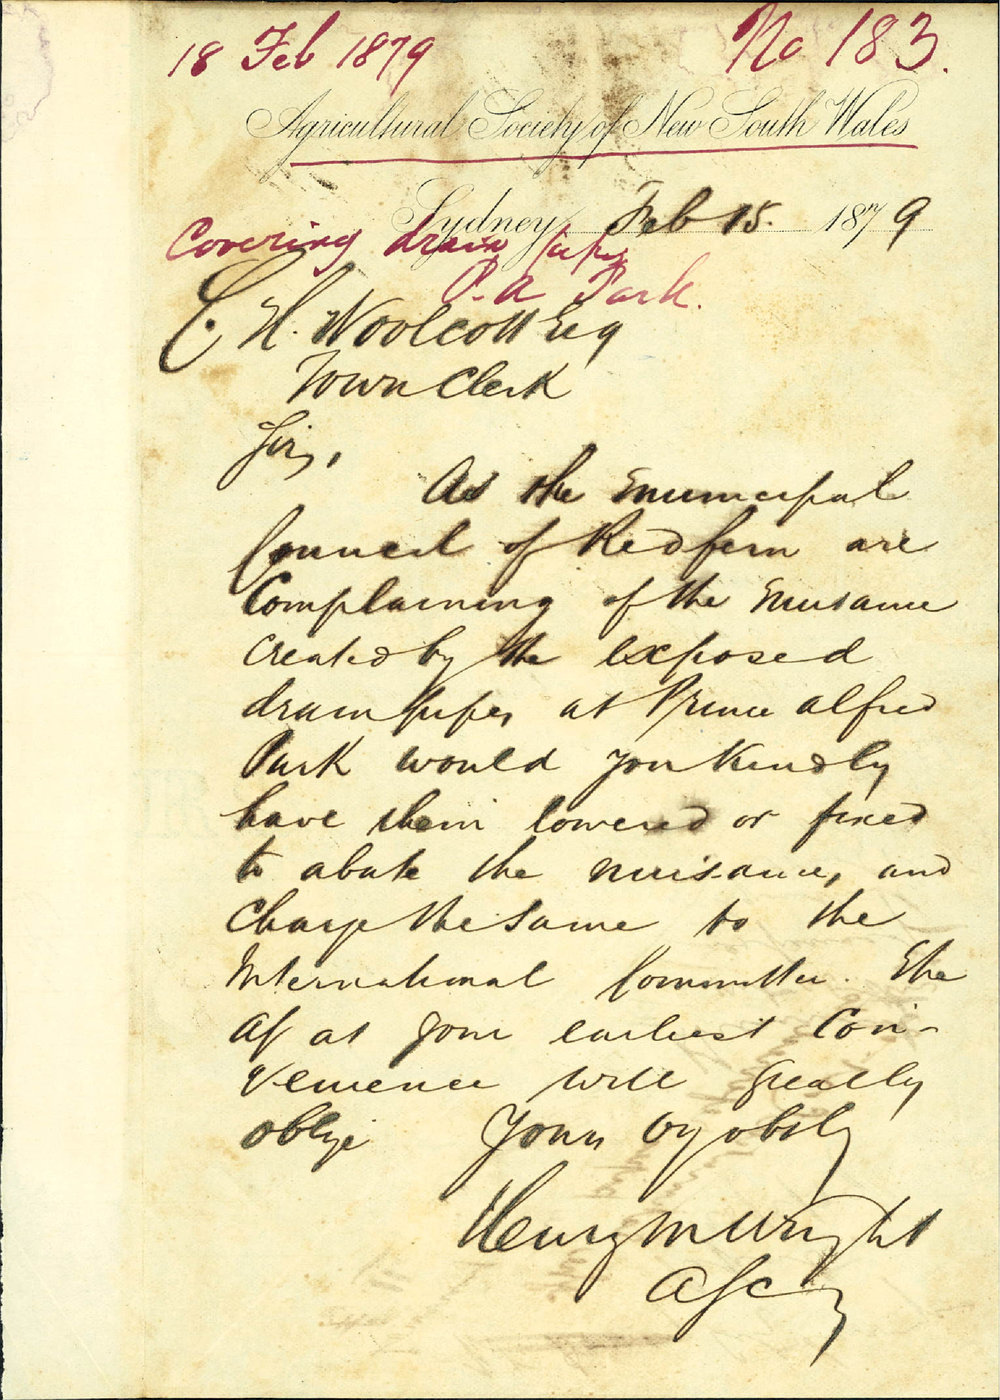 18 Feb 1879
No 183.
Agricultural Society of New South Wales
Sydney, Feb 15. 1879
Covering drain pipes
P. A Park.
C. H. Woolcott Esq
Town Clerk
Sir,
As the Municipal
Council of Redfern are
Complaining of the Nuisance
created by the exposed
drain pipes at Prince Alfred
Park would you kindly
have them lowered or fixed
to abate the nuisance, and
Charge the same to the
International Committee. The
at your earliest Con-
venience will greatly
oblige Yours
Henry M Wright